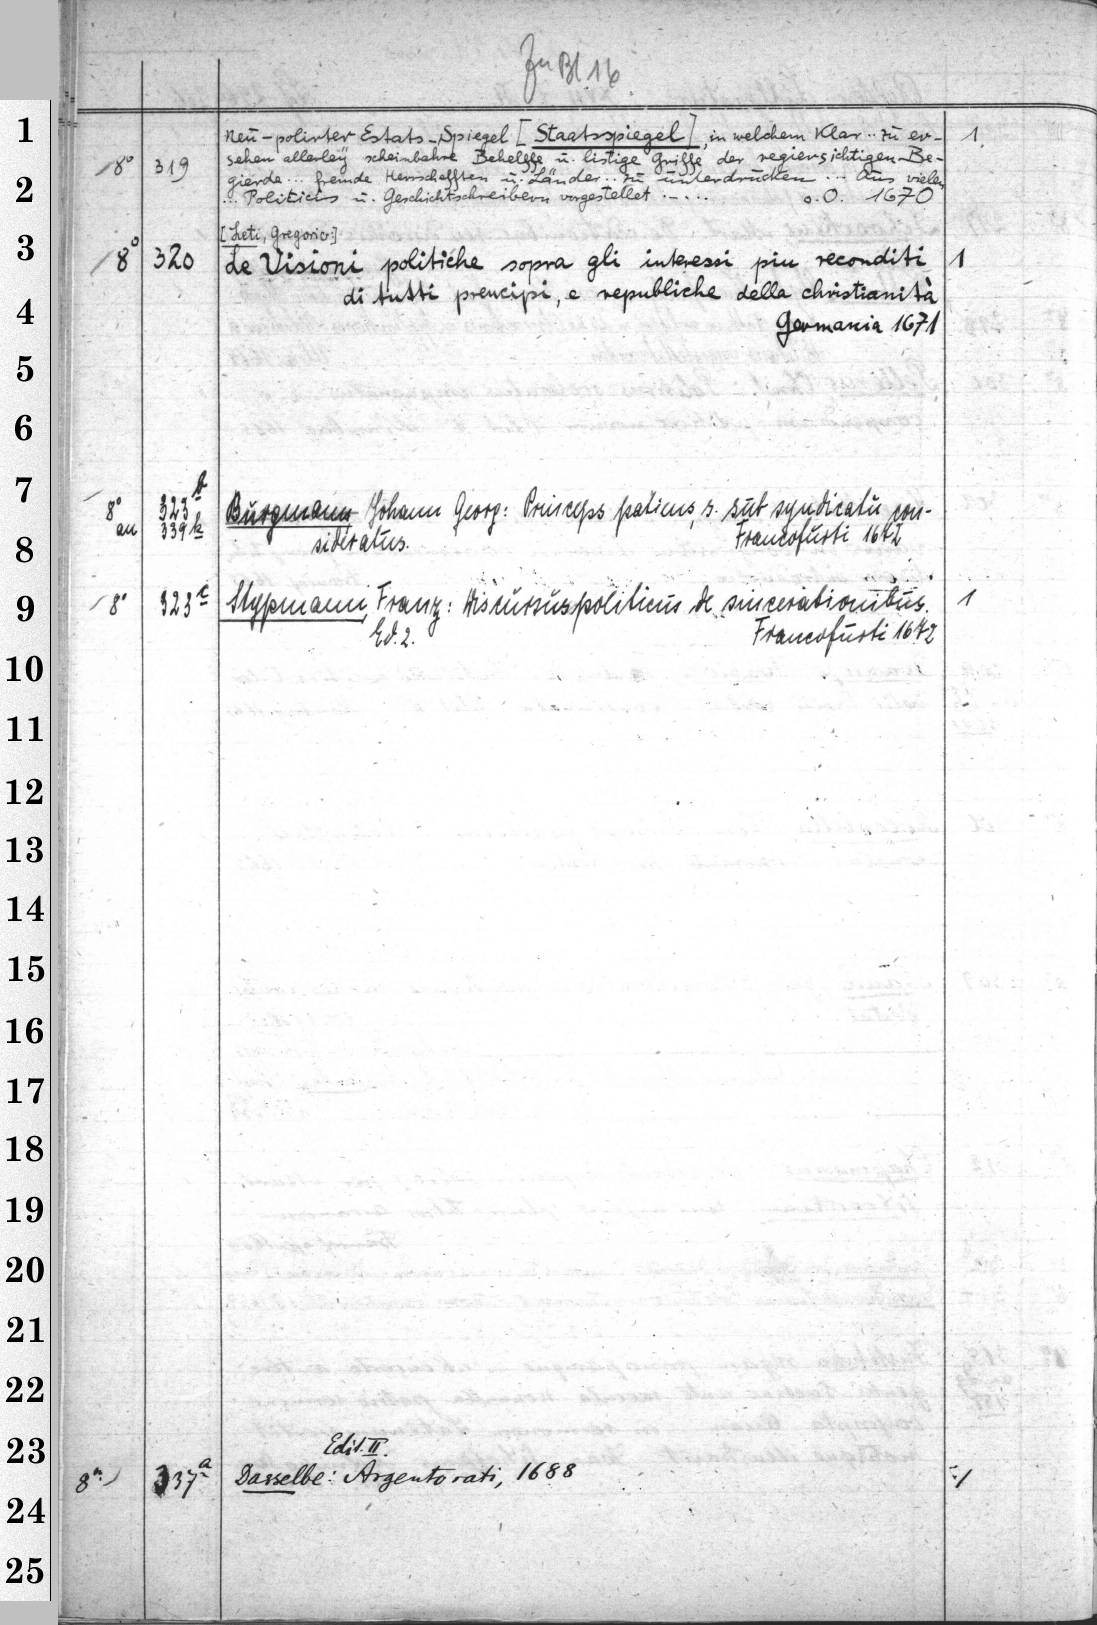 Zu Bl 16
1
Neu-polirter Estats-Spiegel [Staatsspiegel], in welchem Klar .. zu er- 1
8° 319 sehen allerleÿ scheinbahre Behelffe u. listige Griffe der regiersichtigen Be-
2
gierde ... fremde Herrschafften u. Länder .. zu unterdrucken ... Aus vielen
... Politicis u. Geschichtschreibern vorgestellet ..... o.O. 1670
[Leti, Gregorio:]
3
8° 320 Le Visioni politiche sopra gli interessi piu reconditi 1
4
di tutti prencipi, e republiche della christianità
Germania 1671
5
6
7
8° an 323b 339k Burgmann, Johann Georg: Princeps s. sub syndicatu con-
8
sideratus. Francofurti 1672
9
8° 323c Stypmann, Franz: Discursus politicus de sincerationibus. 1
Ed. 2. Francofurti 1672
10
11
12
13
14
15
16
17
18
19
20
21
22
23
Edit. II.
8° 337a Dasselbe: Argentorati, 1688 1
24
25